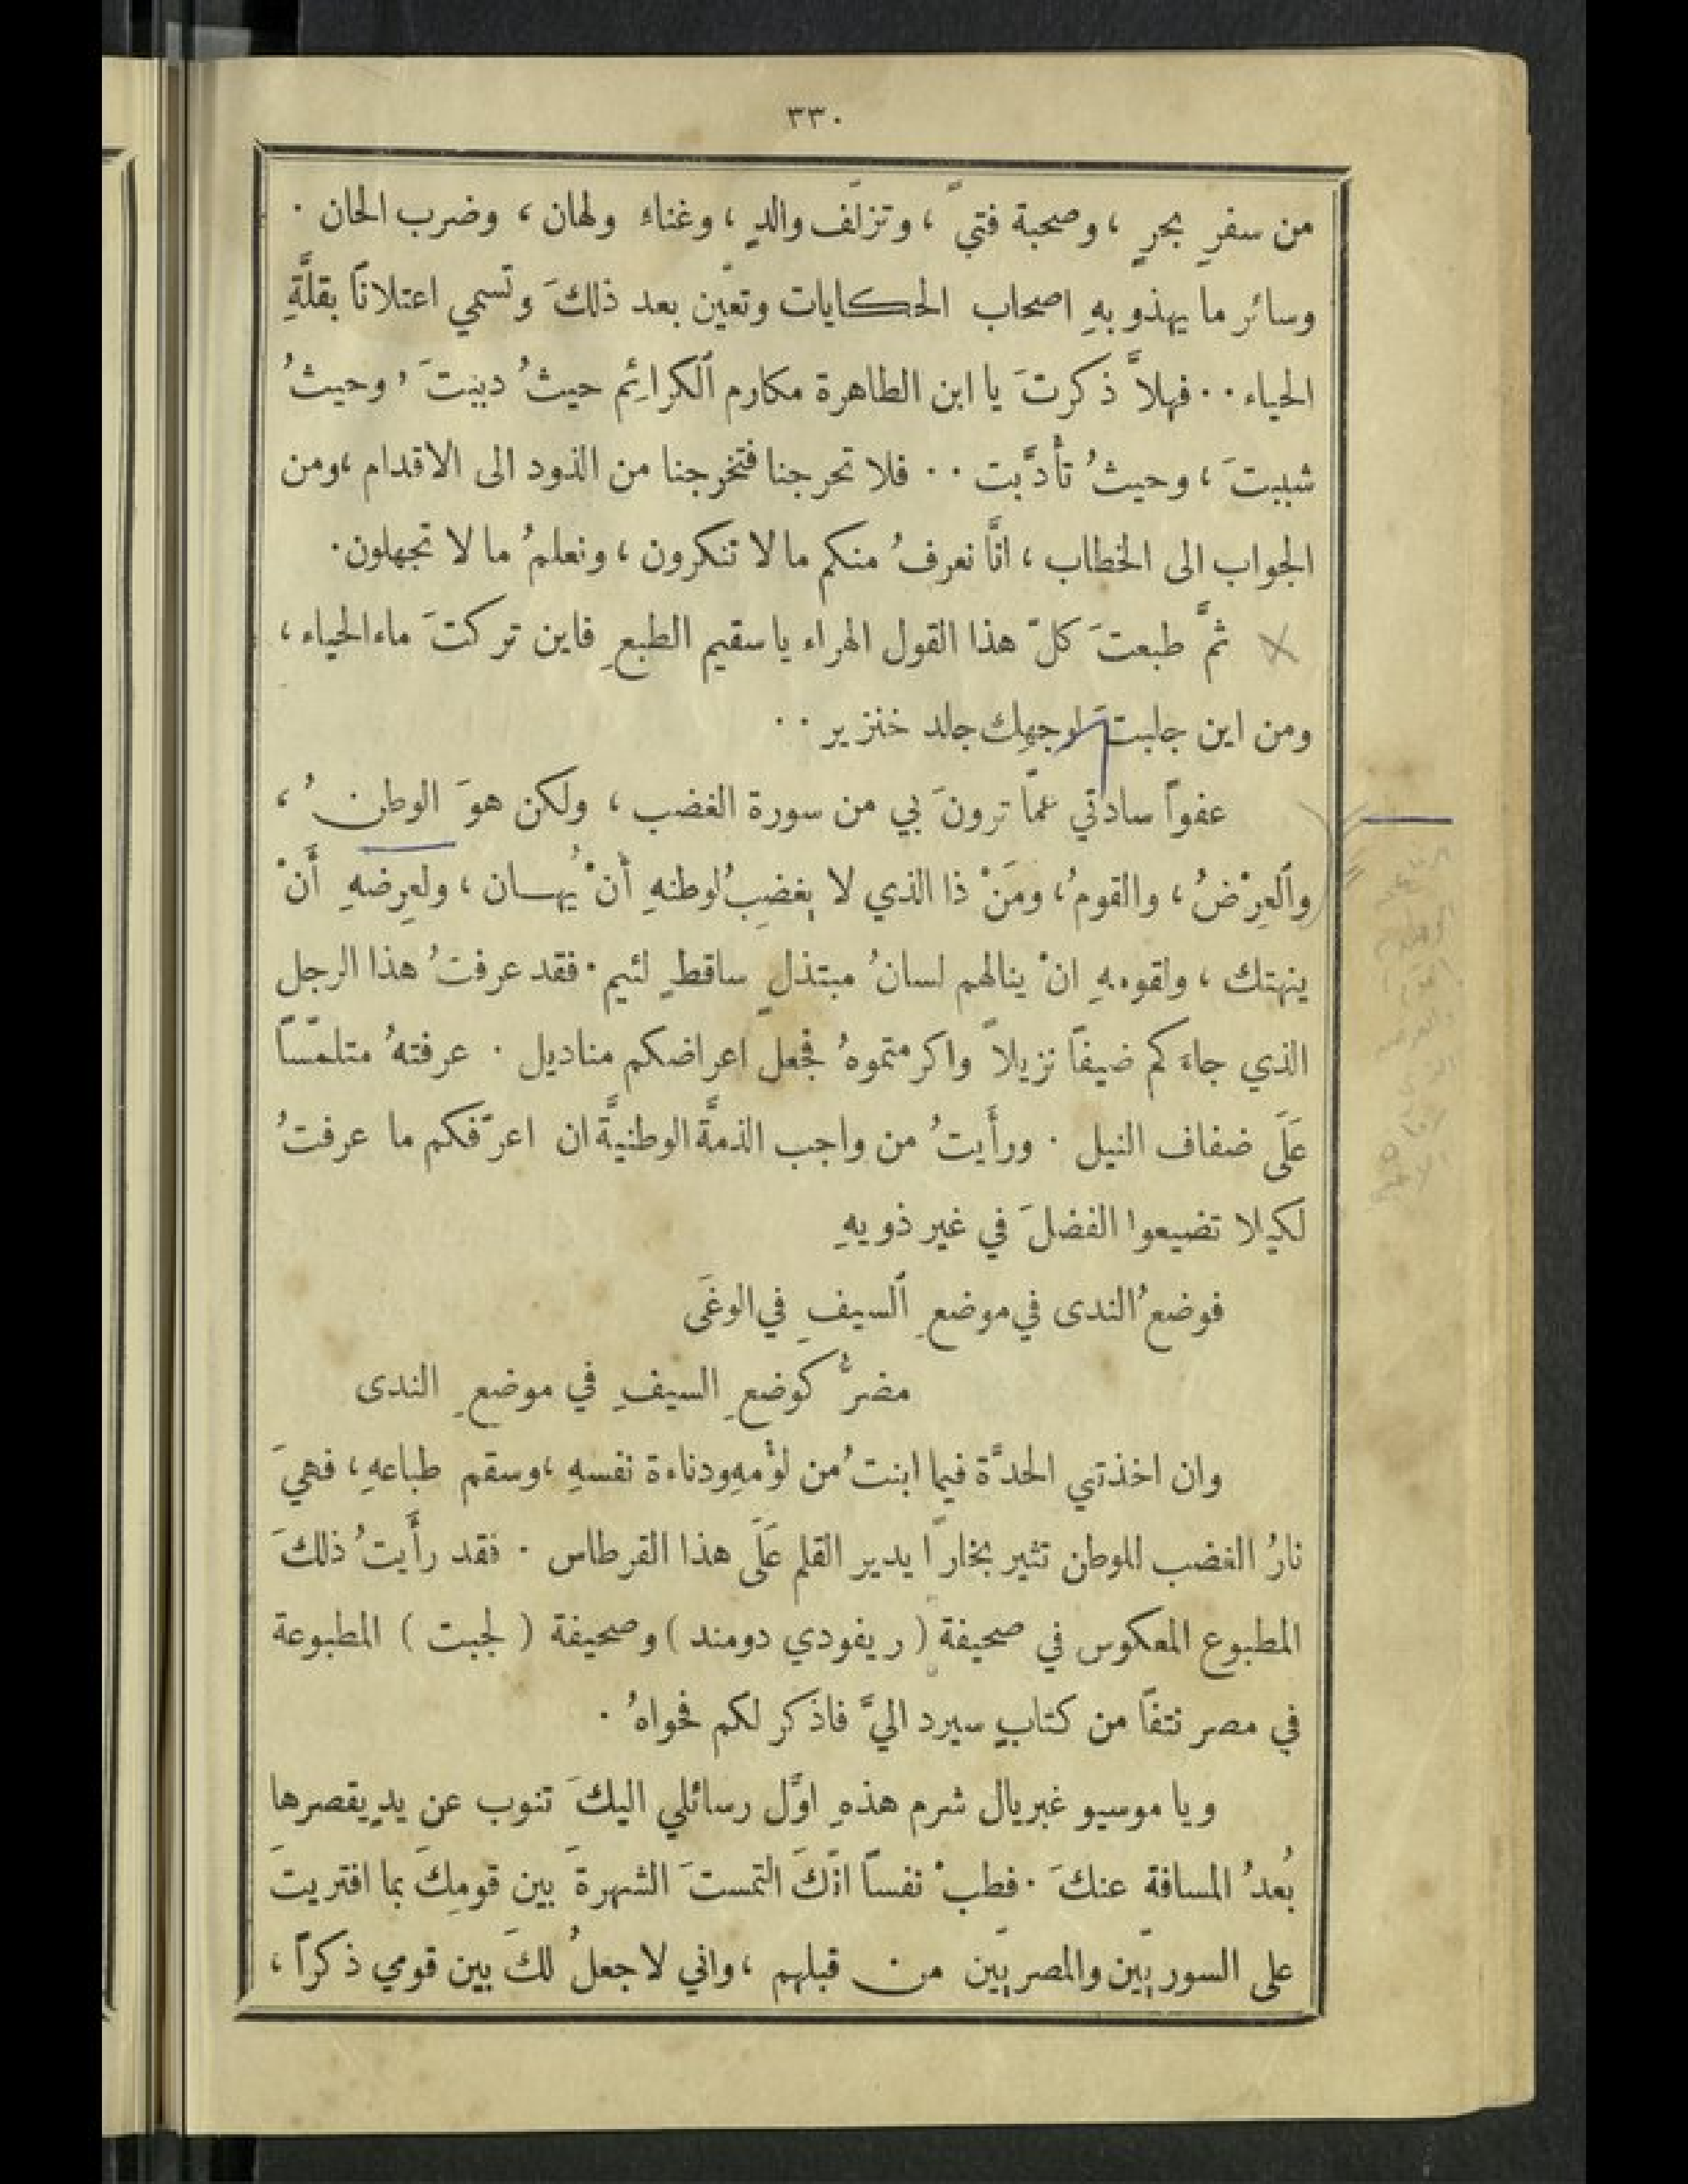 ٣٣٠
من سفرِ بحرٍ ، وصحبة فتيّ ، وتزلّف والدٍ ، وغناءٍ ولهان ، وضرب الحان ·
وسائر ما يهذو بهِ اصحاب الحكايات وتعيّن بعد ذلكَ وتسمي اعتلانًا بقلَّةِ
الحياء ·· فهلاَّ ذكرتَ يا ابن الطاهرة مكارم ٱلكرائِم حيثُ دببتَ ، وحيثُ
شببتَ ، وحيثُ تأدَّبت ·· فلا تحرجنا فتخرجنا من الذود الى الاقدام ، ومن
الجواب الى الخطاب ، انَّا نعرفُ منكم ما لا تنكرون ، ونعلمُ ما لا تجهلون·
ثمَّ طبعتَ كلّ هذا القول الهراء يا سقيم الطبعِ فاين تركتَ ماء الحياء ،
ومن اين جلبتَ لوجهِك جلد خنزير ··
عفواً سادتي عمَّا ترونَ بي من سورة الغضب ، ولكن هوَ الوطنُ ،
وٱلعِرْضُ ، والقومُ ، ومَنْ ذا الذي لا يغضِبُ لوطنهِ أَنْ يُهان ، ولعِرضهِ أَنْ
ينهتك ، ولقومهِ انْ ينالهم لسانُ مبتذلٍ ساقطٍ لئيم · فقد عرفتُ هذا الرجل
الذي جاءَكم ضيفًا نزيلاً واكرمتموهُ فجعل اعراضكم مناديل · عرفتهُ متلمّسًا
عَلَى ضفاف النيل · ورأَيتُ من واجب الذمَّة الوطنيَّة ان اعرّفكم ما عرفتُ
لكيلا تضيعوا الفضلَ في غير ذويهِ
فوضعُ الندى في موضعِ ٱلسيفِ في الوغَى
مضرٌّ كوضعِ السيفِ في موضعِ الندى
وان اخذتني الحدَّة فيما ابنتُ من لؤْمهِ ودناءة نفسهِ ، وسقم طباعهِ ، فهيَ
نارُ الغضب للوطن تثير بخارًا يدير القلم عَلَى هذا القرطاس · فقد رأَيتُ ذلكَ
المطبوع المعكوس في صحيفة ( ريفودي دومند ) وصحيفة ( لجبت ) المطبوعة
في مصر نتفًا من كتابٍ سيرد اليَّ فاذكر لكم فحواهُ ·
ويا موسيو غبريال شرم هذهِ اوَّل رسائلي اليكَ تنوب عن يدٍ يقصرها
بُعدُ المسافة عنكَ · فطبْ نفسًا انّكَ التمستَ الشهرةَ بين قومِكَ بما افتريتَ
على السوريّين والمصريّين من قبلهم ، واني لاجعلُ لكَ بين قومي ذكراً ،